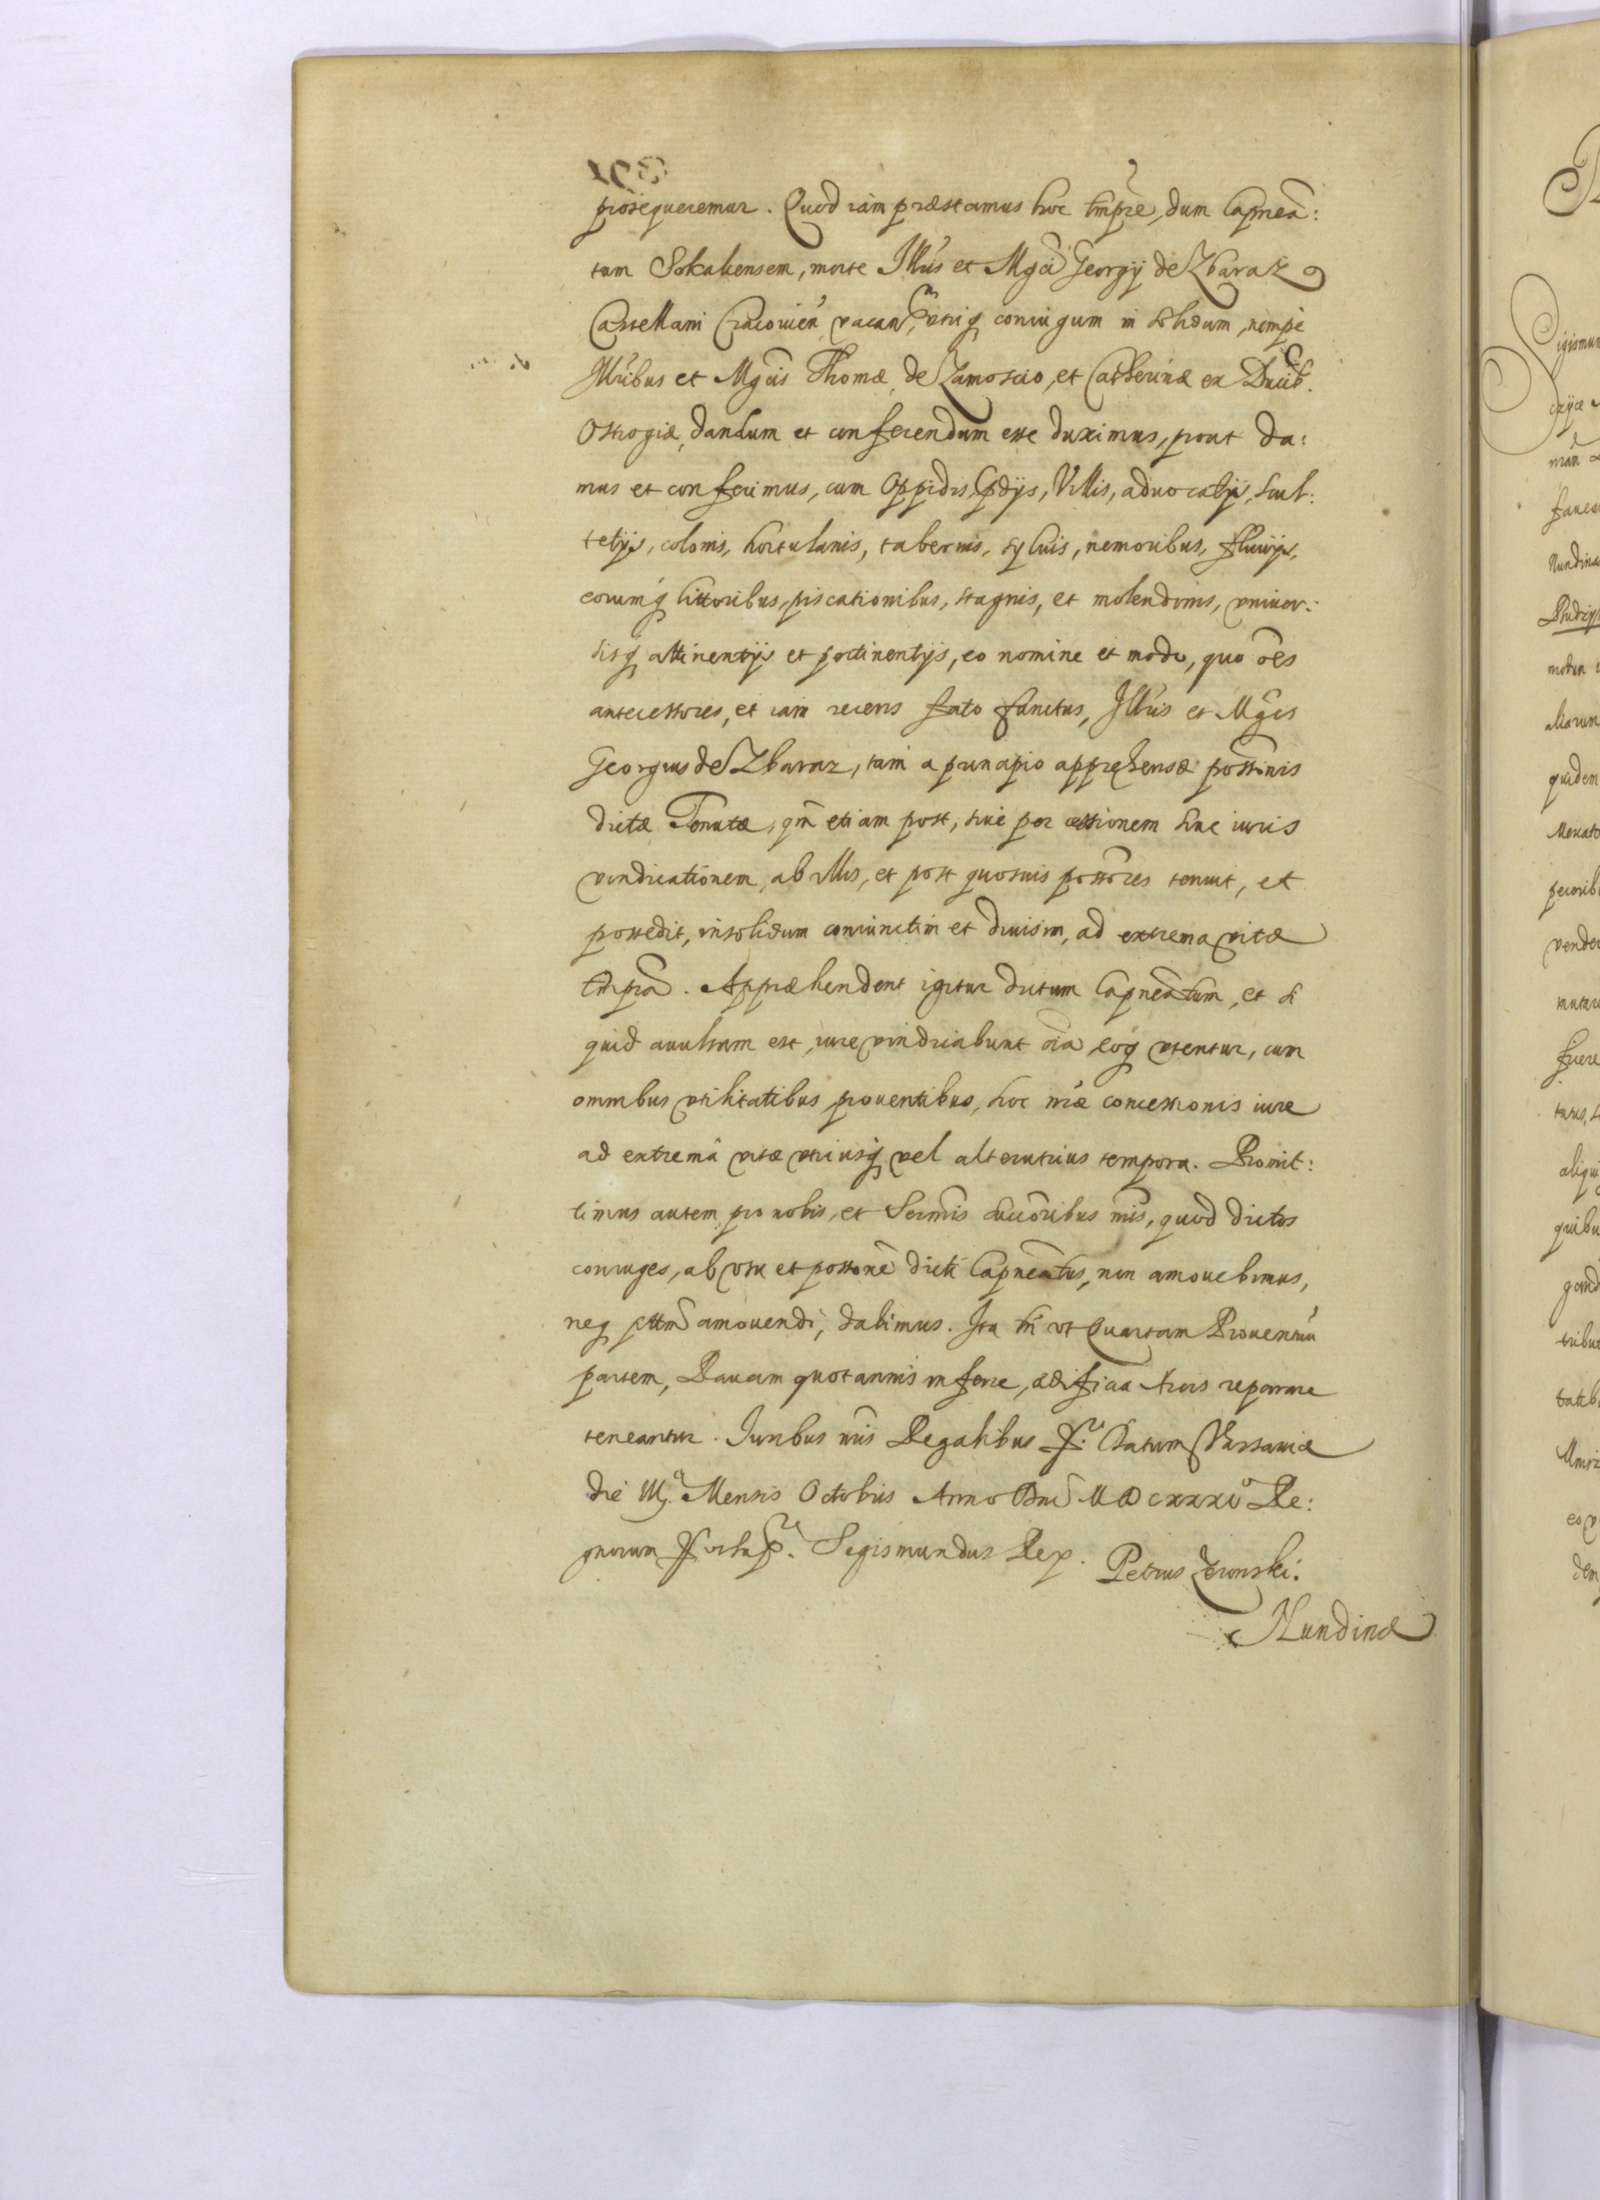 prosequeremur. Quod iam præstamus hoc tmpre, dum Capnea:
tum Sokaliensem, morte Illris et Mgci Georgij de Zbaraz
Castellani Cracovien vacan, utriq coniugum in solidum, nempe
Illribus et Mgcis Thomæ de Zamoscio, et Catherinæ ex Ducib.
Ostrogiæ, dandum et conferendum esse duximus, prout da:
mus et conferimus, cum Oppidis, Prædijs, Villis, advocatijs, scul:
tetijs, colonis, hortulanis, tabernis, sylvis, nemoribus, fluvijs,
eorumq littoribus, piscationibus, stagnis, et molendinis, univer:
sisq attinentijs et pertinentijs, eo nomine et modo, quo oes
antecessores, et iam recens fato functus, Illris et Mgcs
Georgius de Zbaraz, tam a principio apprehensæ possnis
dictæ Tenutæ, qm etiam post, sive per cessionem sive iuris
vindicationem, ab illis, et post quosuis possores tenuit, et
possedit, insolidum coniunctim et divisim, ad extrema vitæ
tmpra. Appræhendent igitur dictum Capneatum, et si
quid avulsum est, iure vindicabunt oia, eoq utentur, cum
omnibus utilitatibus proventibus, hoc nræ concessionis iure
ad extrema vitæ utriusq vel alterutrius tempora. Promit:
timus autem pro nobis, et Sermis succoribus nris, quod dictos
coniuges, ab usu et possone dicti Capneatus, non amovebimus,
neq pttm amovendi, dabimus. Ita tn ut Quartam Proventuu
partem, Ravam quotannis inferre, ædificia Arcis reparare
teneantur. Iuribus nris Regalibus Datum Varsaviæ
die Mensis Octobris Anno Dni MDCXXXI Re:
gnorum Sigismundus Rex. Petrus Zeronski.
Nundinæ